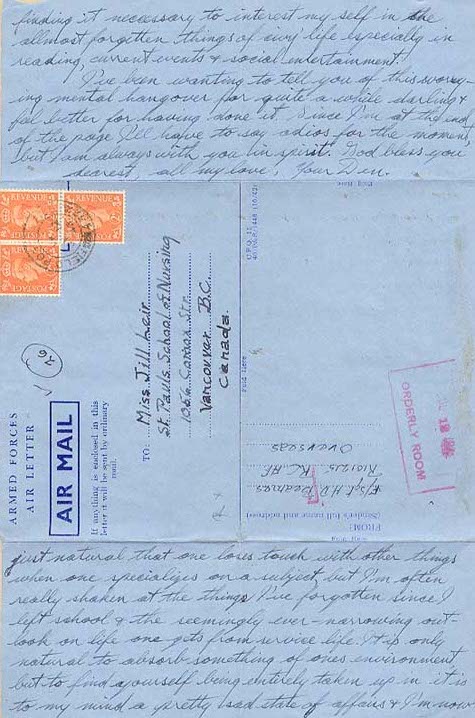 finding it necessary to interest my self in the
allmost forgotten things of civy life especially in
reading, current events & social entertainment!
I've been wanting to tell you of this worry-
ing mental hangover for quite a while darling &
feel better for having done it. Since I'm at the end
of the page I'll have to say adios for the moment,
but I am always with you in spirit. God bless you
dearest, all my love, Your Den.
REVENUE
REVENUE
POSTAGE
POSTAGE
ARMED FORCES
AIR LETTER
AIR MAIL
If anything is enclosed in this
letter it will be sent by ordinary
mail.
26
TO:
Miss Jill Lair
St. Pauls School of Nursing
Str.
Vancouver B.C.
Canada.
ORDERLY ROOM
FROM:
(Sender's full name and address)
F/Sgt. H.D. Reamas
Overseas
just natural that one loses touch with other things
when one specializes on a subject but I'm often
really shaken at the things I've forgotten since I
left school & the seemingly ever-narrowing out-
look on life one gets from service life. It is only
natural to absorb something of ones environment
but to find yourself being entirely taken up in it is
to my mind a pretty bad state of affairs & I'm now